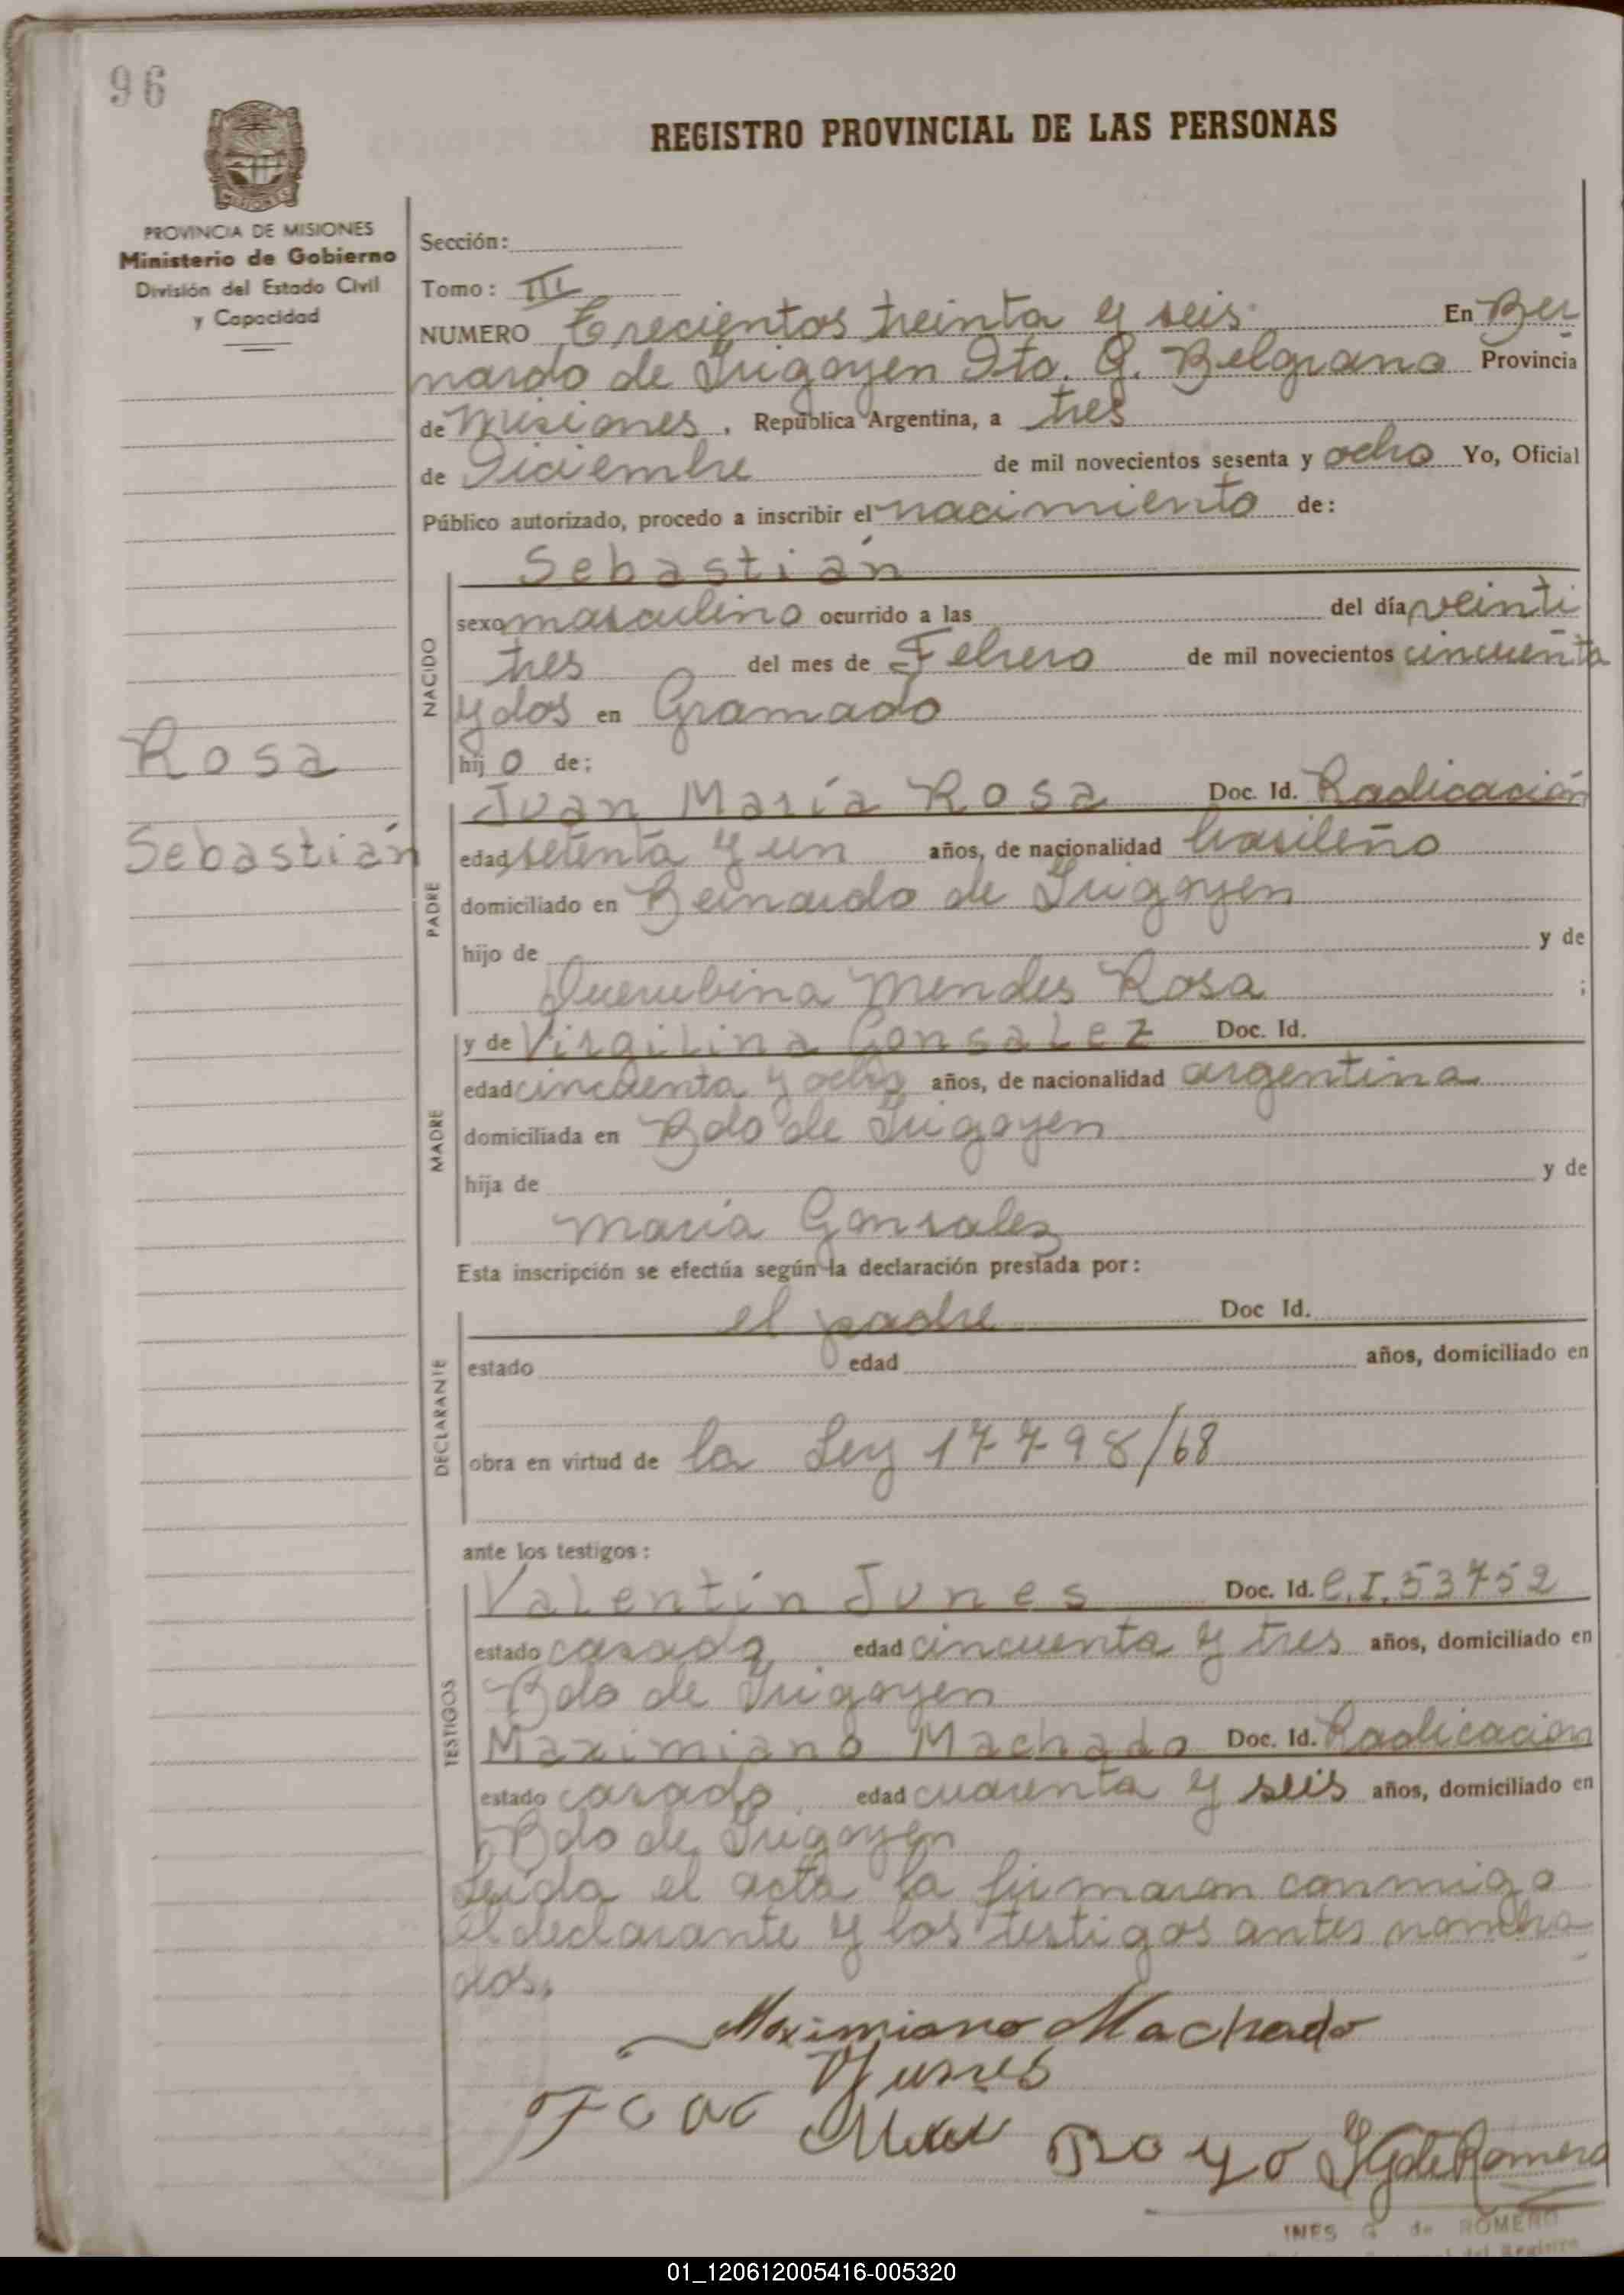 96
REGISTRO PROVINCIAL DE LAS PERSONAS
PROVINCIA DE MISIONES
Ministerio de Gobierno
División del Estado Civil
y Capacidad
Sección:
Tomo: III
NUMERO Trecientos treinta y seis En Ber
nardo de Irigoyen Dto. G. Belgrano Provincia
de Misiones, República Argentina, a tres
de Diciembre de mil novecientos sesenta y ocho Yo, Oficial
Público autorizado, procedo a inscribir el nacimiento de:
Sebastián
NACIDO
sexo masculino ocurrido a las del día veinti
tres del mes de Febrero de mil novecientos cincuenta
y dos en Gramado
hijo de:
Rosa
Sebastián
PADRE
Juan María Rosa Doc. Id. Radicación
edad setenta y un años, de nacionalidad brasileño
domiciliado en Bernardo de Irigoyen
hijo de y de
Querubina Mendes Rosa ;
MADRE
y de Virgilina Gonsalez Doc. Id.
edad cincuenta y ocho años, de nacionalidad argentina
domiciliada en Bdo de Irigoyen
hija de y de
María Gonsalez
Esta inscripción se efectúa según la declaración prestada por:
DECLARANTE
el padre Doc Id.
estado edad años, domiciliado en
obra en virtud de la Ley 17798/68
ante los testigos:
TESTIGOS
Valentín Junes Doc. Id. C.I. 53752
estado casado edad cincuenta y tres años, domiciliado en
Bdo de Irigoyen
Maximiano Machado Doc. Id. Radicación
estado casado edad cuarenta y seis años, domiciliado en
Bdo de Irigoyen
Leída el acta la firmaron conmigo
el declarante y los testigos antes nombra
dos.
Maximiano Machado
Yunes
INES G de ROMERO
01_120612005416-005320